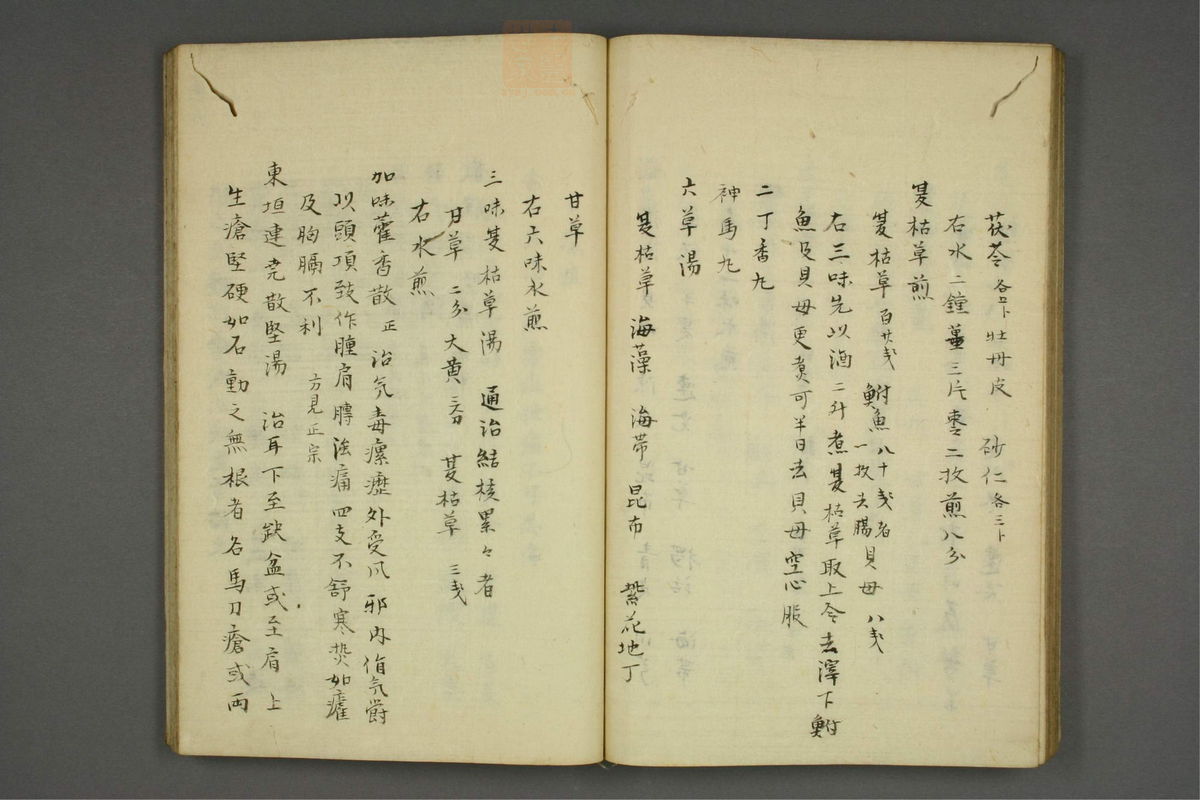 茯苓各四卜 牡丹皮 砂仁各三卜
右水二鐘薑三片棗二枚煎八分
夏枯草煎
夏枯草百廿戔 鮒魚八十戔者一枚去腸 貝母 八戔
右三味先以酒二升煮夏枯草取上令去滓下鮒
魚及貝母更煮可半日去貝母空心服
二丁香丸
神馬丸
六草湯
夏枯草 海藻 海帯 昆布 紫花地丁
甘草
右六味水煎
三味夏枯草湯 通治結核累々者
甘草 二分 大黄 三分 夏枯草 三戔
右水煎
加味藿香散 正 治気毒瘰癧外受風邪内傷気欝
以頭項致作腫肩膊强痛四支不舒寒熱如瘧
及胸膈不利 方見正宗
東垣連堯散堅湯 治耳下至缺盆或至肩上
生瘡堅硬如石動之無根者名馬刀瘡或両